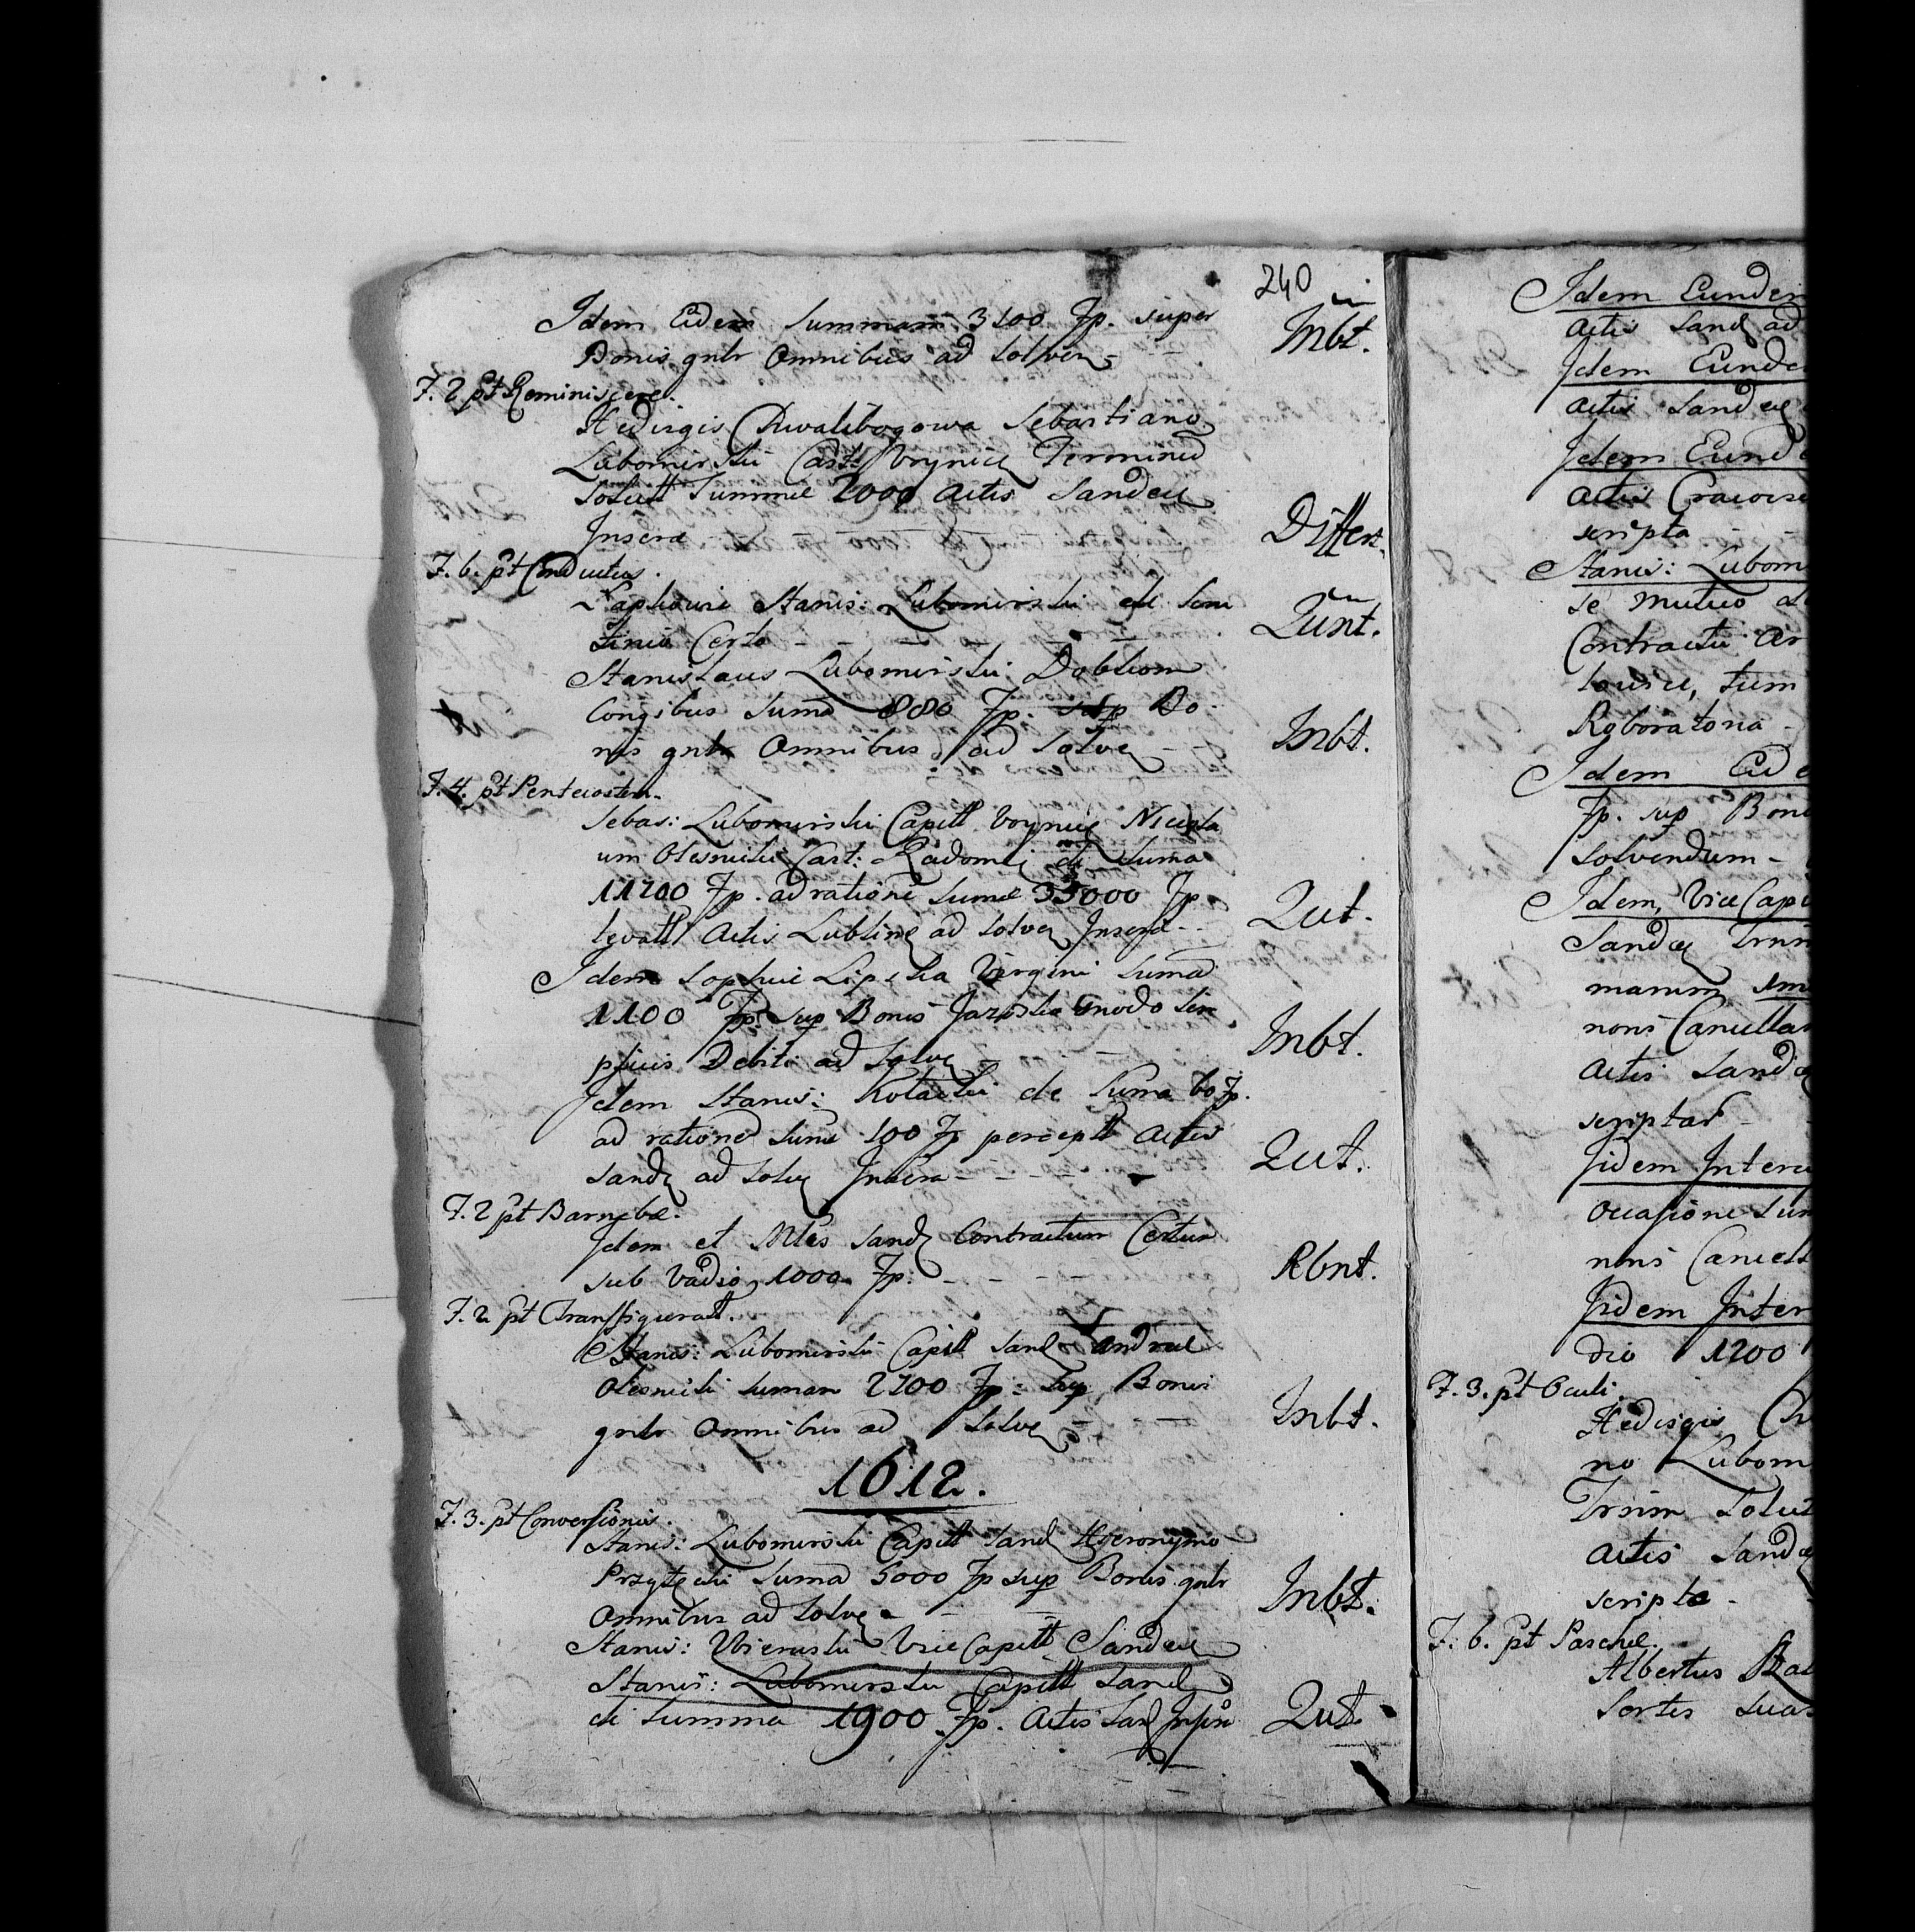 240
Idem Eidem Summam 3100 Fp. super
Bonis gnlr Omnibus ad Solven Inbt.
F. 2 pt Reminiscere.
Hedvigis Chwalibogowa Sebastiano
Lubomirski Cast: Voynice Terminu
Solutt Summe 2000 Actis Sandec
Insera Differt.
F. 6. pt Conductus.
Stanis: Lubomirski
Certo Qunt.
Stanislaus Lubomirski
Congibus Suma 880 Fp. sup Bo
nis gnlr Omnibus ad Solve Inbt.
F. 4. pt Pentecosten.
Sebas: Lubomirski Capitt Voynice Nicola
um Olesnicki Cast: Radomi de Suma
11200 Fp. ad ratione Sume 33000 Fp
levatt Actis Lubline ad Solve Insera Qut.
Idem Sophie Lipska Virgini Suma
1100 Fp. Sup Bonis modo Sim
plicis Debiti ad Solve Inbt.
Idem Stanis: de Suma 60 Fp.
ad ratione Sume 100 Fp perceptt Actis
Sand ad Solve Insera Qut.
F. 2 pt Barnabæ.
Idem et Sand Contractum Certum
sub Vadio 1000 Fp: Rbnt.
F. 2 pt Transfiguratt.
Stanis: Lubomirski Capitt Sand Andreæ
Olesnicki Sumam 2200 Fp: Sup Bonis
gnlr Omnibus ad Solve Inbt.
1612.
F. 3. pt Conversionis.
Stanis: Lubomirski Capitt Sand Hieronymo
Przyłęcki Suma 5000 Fp sup Bonis gnlr
Omnibus ad Solve Inbt.
Stanis: Wieruski Vice Capitt Sandec
Stanis: Lubomirski Capitt Sand
de Summa 1900 Fp. Actis San Qut.
Idem Eundem
Actis Sand ad
Idem Eunde
Actis Sandec
Idem Eund
Actis
scripta
Stanis: Lubom
se mutuo
Contractu Ar
tum
Roboratoria
Idem Eide
Fp. sup Bon
Solvendum
Idem, Vice Cap
Sand
marum
nons Cancella
Actis Sand
scriptas
Iidem Inter
occasione Sum
nons Cancell
Iidem Inter
dio 1200
F. 3. pt Oculi.
Hedvigis Ch
no Lubom
Trmin Solut
Actis Sand
scripta
F. 6. pt Paschæ.
Albertus
Sortis Suas